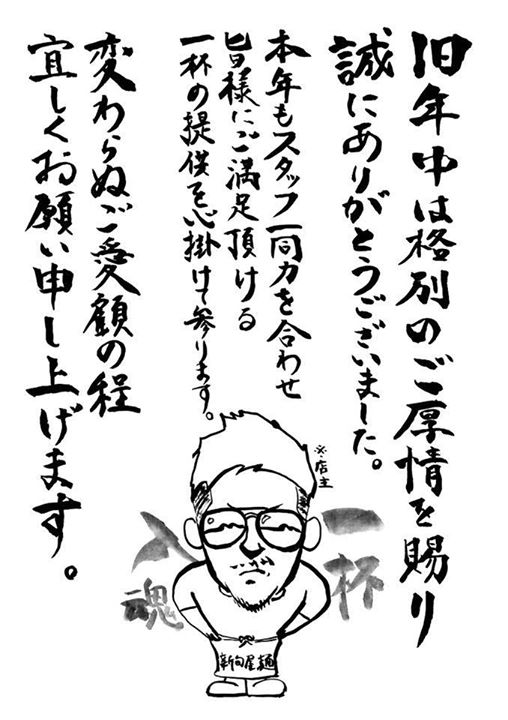 旧年中は格別のご厚情を賜り
誠にありがとうございました。
本年もスタッフ一同力を合わせ
皆様にご満足頂ける
一杯の提供を心掛けて参ります。
変わらぬご愛顧の程
宜しくお願い申し上げます。
※店主
一杯
入魂
新旬屋麺